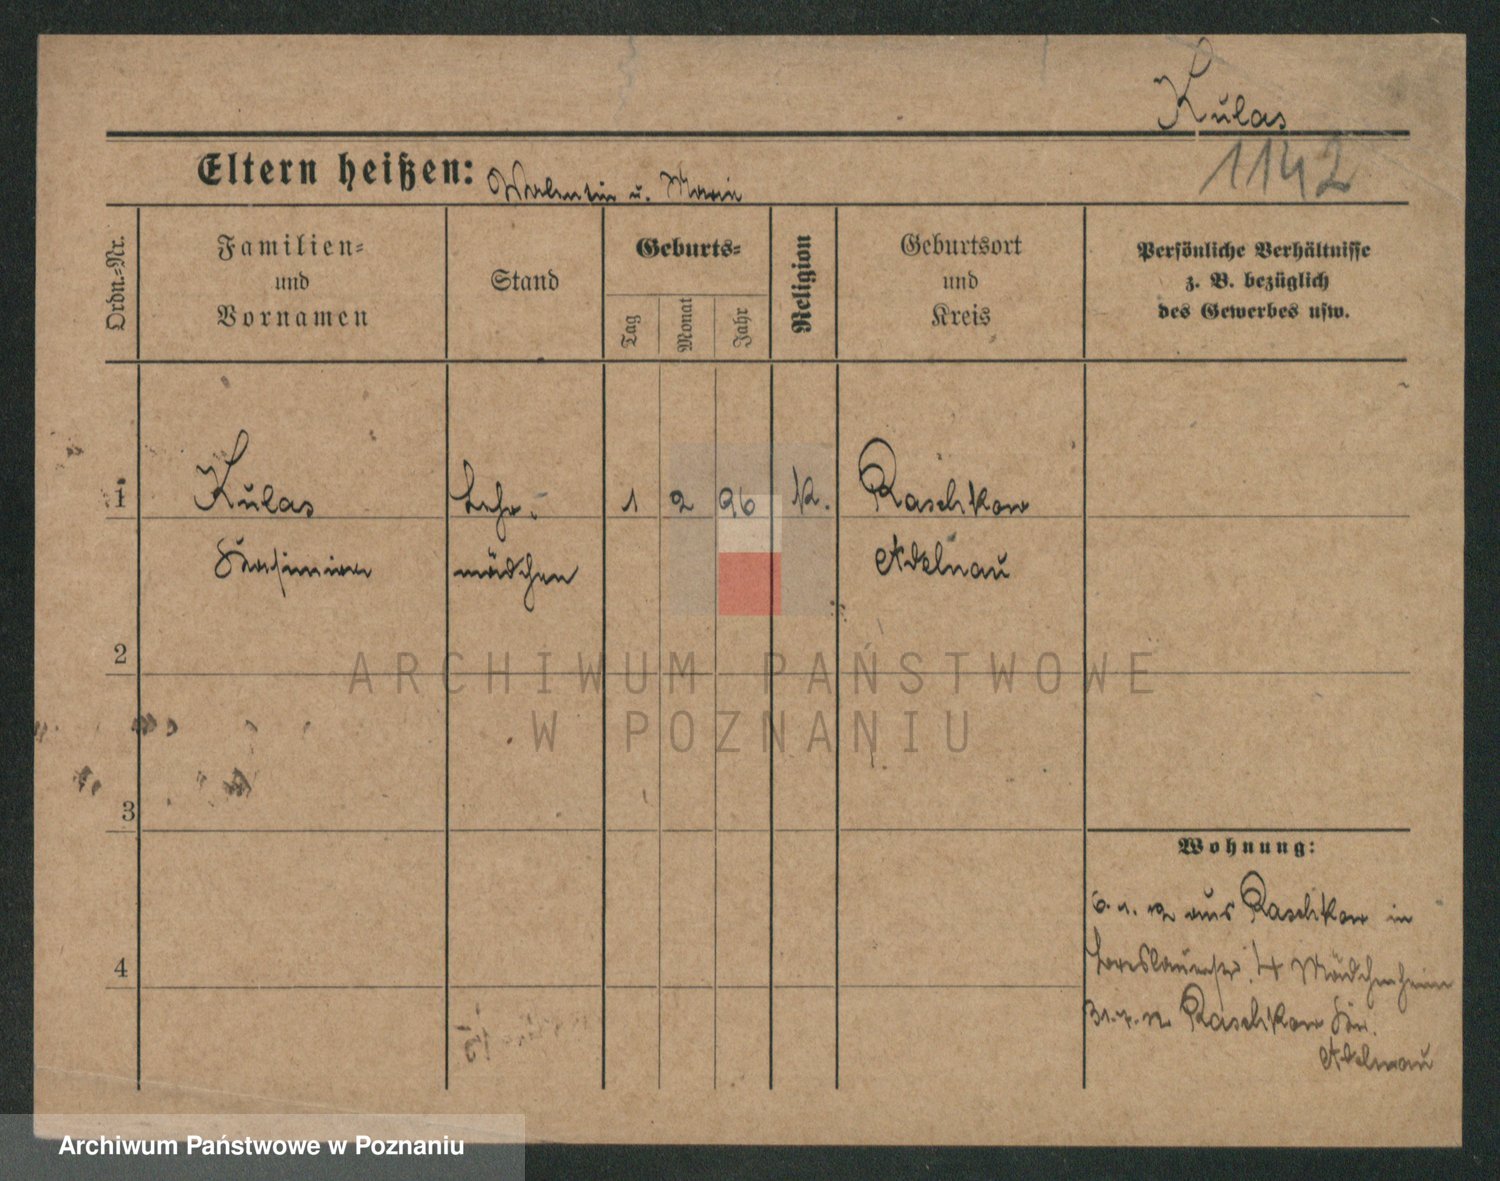 Kulas
1142
Eltern heißen: Walentin u. Marie
Ordn.-Nr.
Familien-
und
Vornamen
Stand
Geburts-
Tag
Monat
Jahr
Religion
Geburtsort
und
Kreis
Persönliche Verhältnisse
z. B. bezüglich
des Gewerbes usw.
1 Kulas Lehr- 1 2 96 K. Raschkow
Kasimira mädchen Adelnau
2
3
4
Wohnung:
aus Raschkow in
4 Mädchenheim
Raschkow Kr.
Adelnau
ARCHIWUM PAŃSTWOWE
W POZNANIU
Archiwum Państwowe w Poznaniu